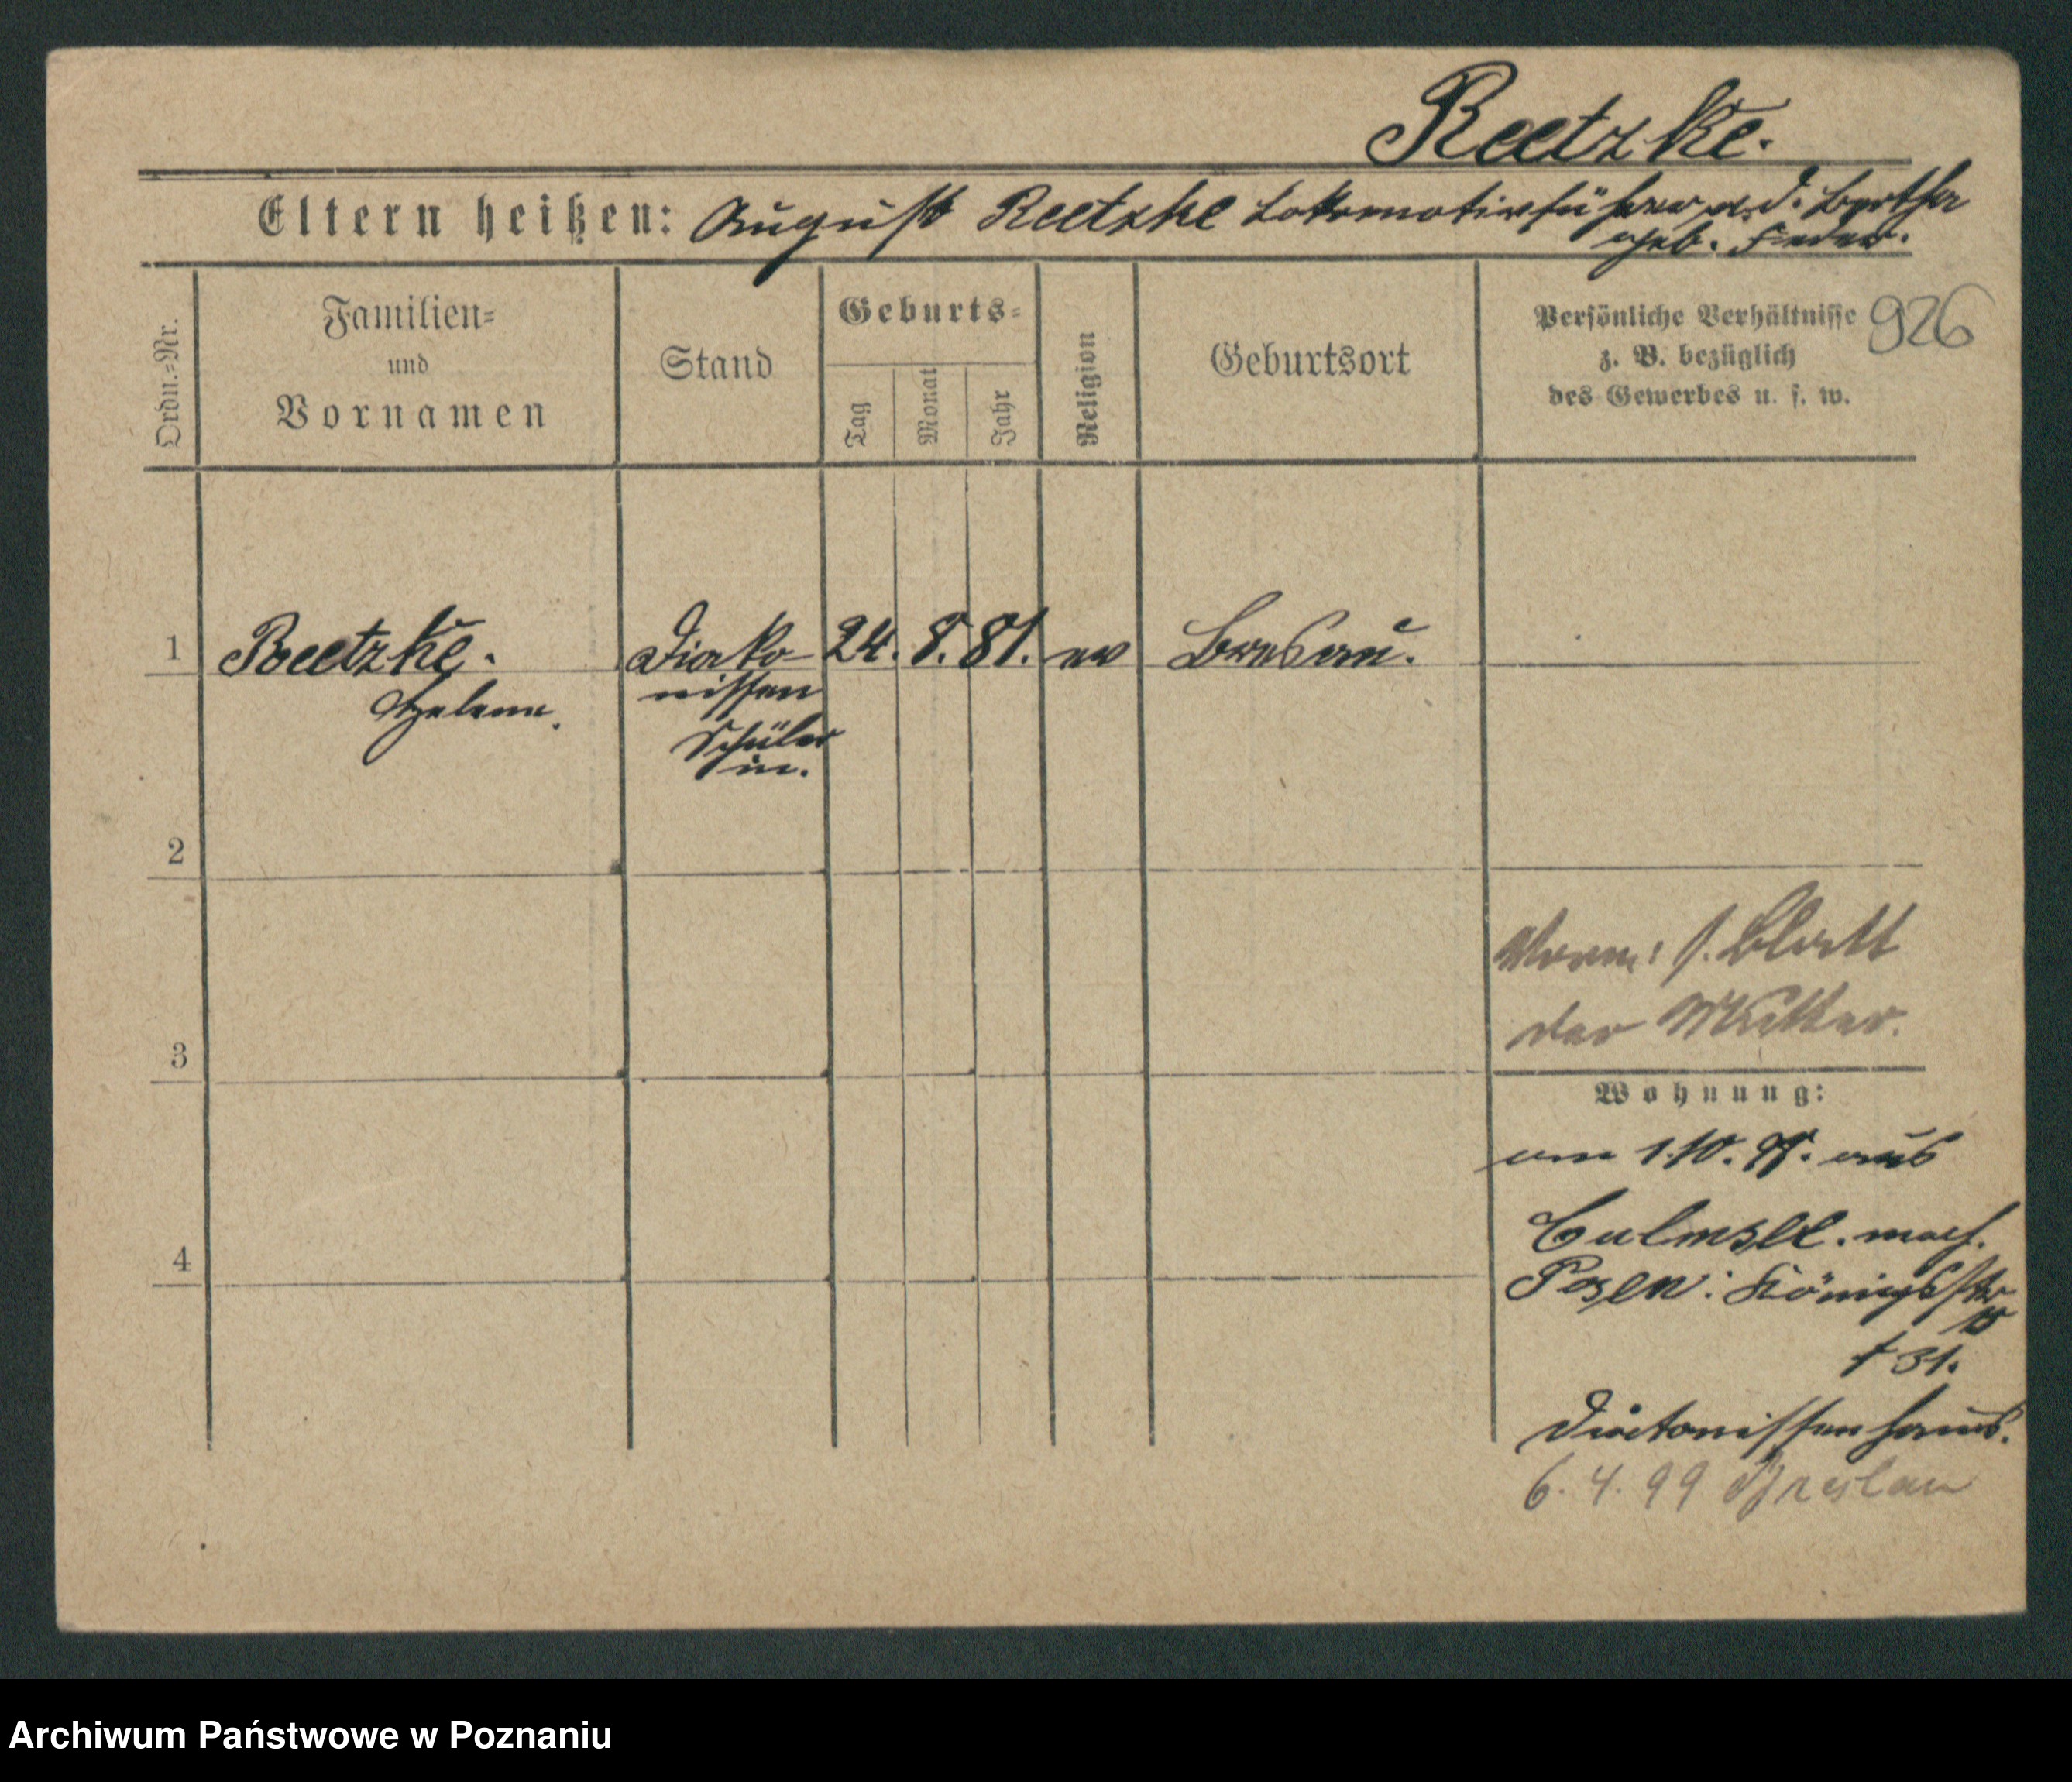 Reetzke.
Eltern heißen: August Reetzke Lokomotivführer a. D. Bertha
geb. Feder.
Ordn.=Nr.
Familien=
und
Vornamen
Stand
Geburts=
Tag
Monat
Jahr
Religion
Geburtsort
Persönliche Verhältnisse
z. B. bezüglich
des Gewerbes u. s. w.
926
1 Reetzke. Diako- 24. 8. 81. ev Breslau.
Helene. nissen
Schüler
in.
2
Verm: s. Blatt
der Mutter.
3
Wohnung:
am 1.10. 98. aus
Culmsee. nach.
4
Posen: Königsstr
31.
Diakonissenhaus.
6. 4. 99 Breslau
Archiwum Państwowe w Poznaniu